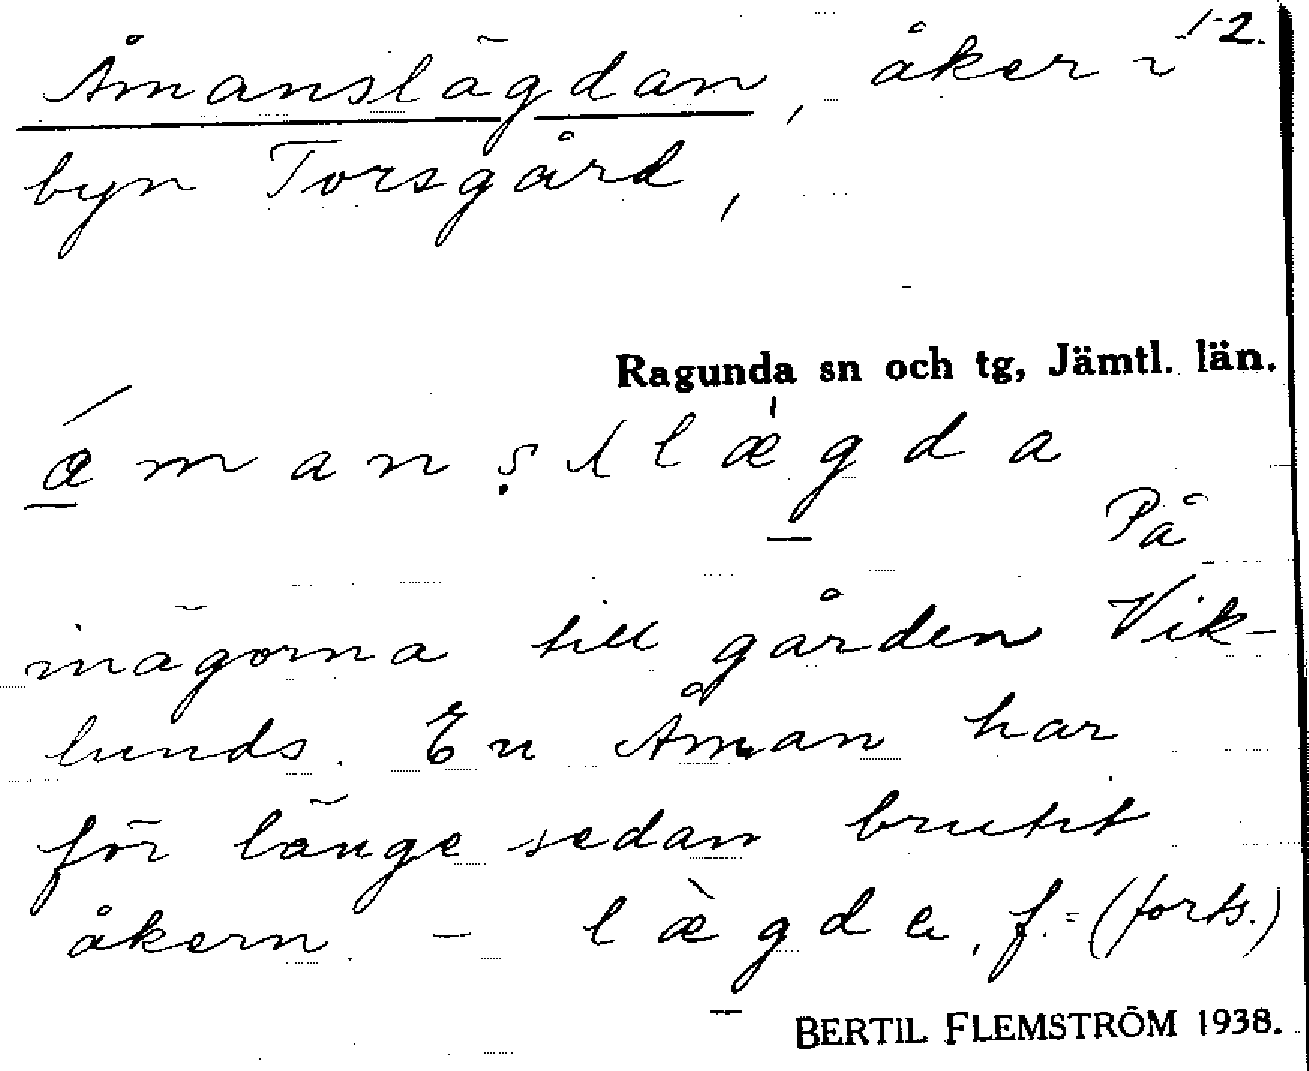 1-2.
Åmanslägdan, åker i
byn Torsgård,
Ragunda sn och tg, Jämtl. län.
På
inägorna till gården Vik-
lunds. En Åman har
för länge sedan brutit
åkern. – lægda, f. = (forts.)
BERTIL FLEMSTRÖM 1938.